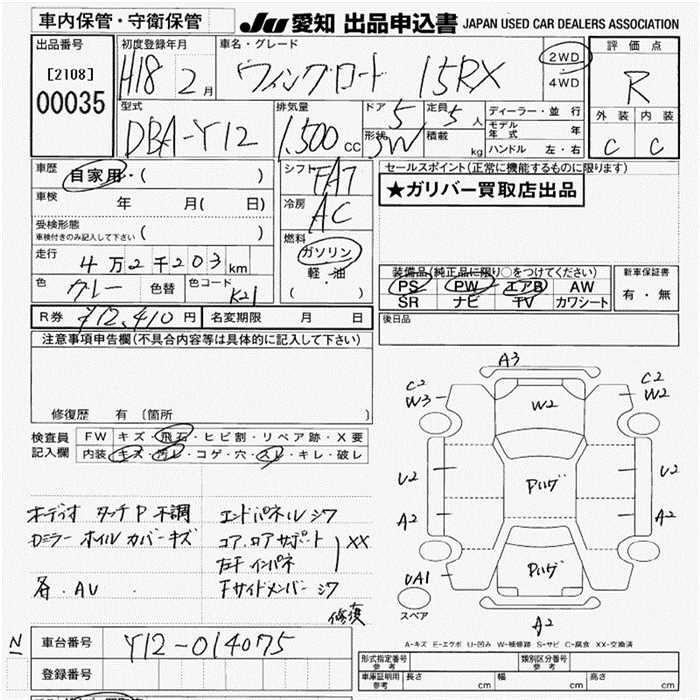 車内保管・守衛保管 JU 愛知 出品申込書 JAPAN USED CAR DEALERS ASSOCIATION
出品番号 [2108] 00035
初度登録年月 H18 2月
車名・グレード ウイングロード 15RX
2WD 4WD
評価点 R
外装 内装
C C
型式 DBA-Y12
排気量 1.500 CC
ドア 5 定員 5人
形状 SW 積載 kg
ディーラー・並行
モデル年式 年
ハンドル 左・右
車歴 自家用・( )
車検 年 月( 日)
受検形態
車検付きのみ記入して下さい ( )
走行 4万2千203km
色 グレー 色替 色コード K21
シフト FAT
冷房 AC
燃料 ガソリン
軽・油
( )
セールスポイント(正常に機能するものに限ります)
★ガリバー買取店出品
装備品(純正品に限り○をつけてください)
PS PW エアB AW
SR ナビ TV カワシート
新車保証書
有・無
R券 ¥12,410円 名変期限 月 日
後日品
注意事項申告欄(不具合内容等は具体的に記入して下さい)
修復歴 有〔箇所 〕
検査員記入欄
FW キズ・飛石・ヒビ割・リペア跡・X要
内装 キズ・汚レ・コゲ・穴・スレ・キレ・破レ
オーディオ タッチP 不調
Dミラー ホイルカバーキズ
各.AU
エンドパネルシワ
コア.ロアサポート XX
左F インパネ
Fサイドメンバーシワ
修復
A3
C2 W3
W2
C2 W2
U2
Pいげ
U2
A2
A2
Pいげ
UA1
スペア
A2
A-キズ E-エクボ U-凹み W-補修跡 S-サビ C-腐食 XX-交換済
N 車台番号 Y12-014075
登録番号
形式指定番号 参考
類別区分番号 参考
車庫証明用 参考 長さ cm 幅 cm 高さ cm